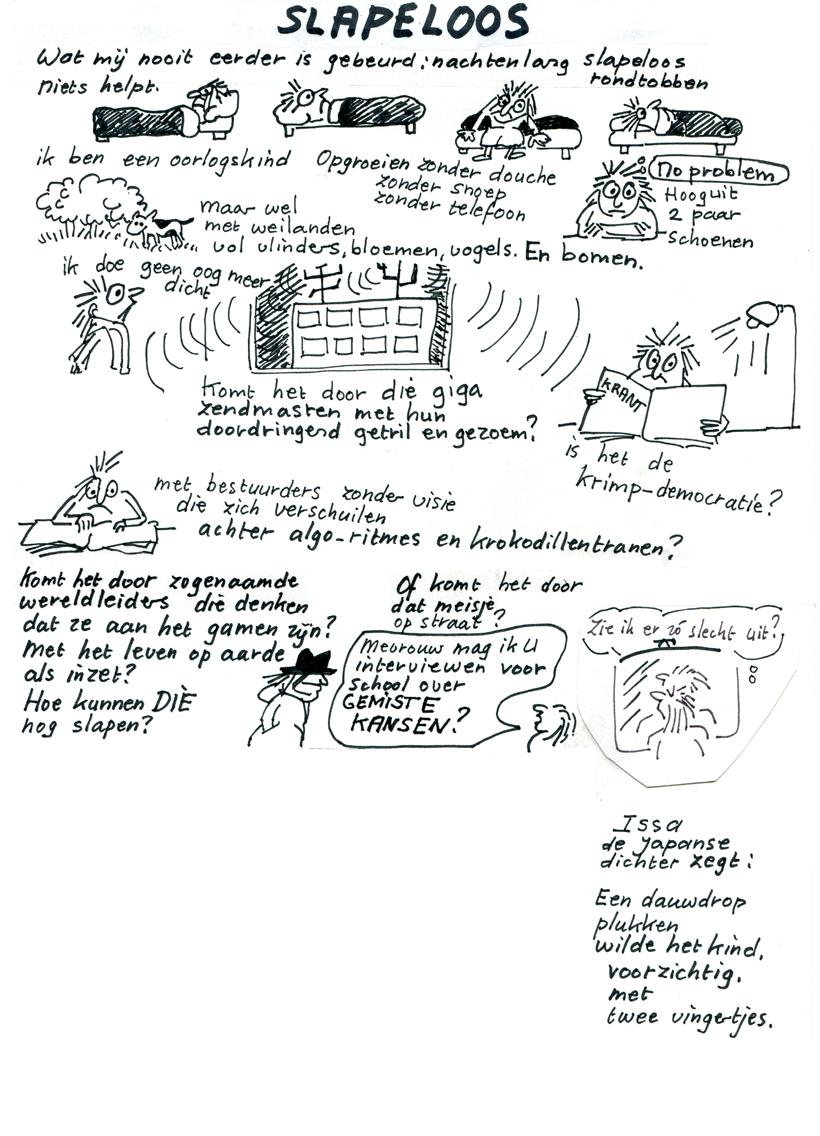 SLAPELOOS
Wat mij nooit eerder is gebeurd: nachtenlang slapeloos
rondtobben
niets helpt.
ik ben een oorlogskind
Opgroeien zonder douche
zonder snoep
zonder telefoon
No problem
Hooguit
2 paar
schoenen
maar wel
met weilanden
vol vlinders, bloemen, vogels. En bomen.
ik doe geen oog meer
dicht
Komt het door die giga
zendmasten met hun
doordringend getril en gezoem?
KRANT
is het de
krimp-democratie?
met bestuurders zonder visie
die zich verschuilen
achter algo-ritmes en krokodillentranen?
Komt het door zogenaamde
wereldleiders die denken
dat ze aan het gamen zijn?
Met het leven op aarde
als inzet?
Hoe kunnen DIE
nog slapen?
Of komt het door
dat meisje
op straat?
Mevrouw mag ik U
interviewen voor
school over
GEMISTE
KANSEN?
Zie ik er zó slecht uit?
Issa
de Japanse
dichter zegt:
Een dauwdrop
plukken
wilde het kind,
voorzichtig,
met
twee vingertjes.